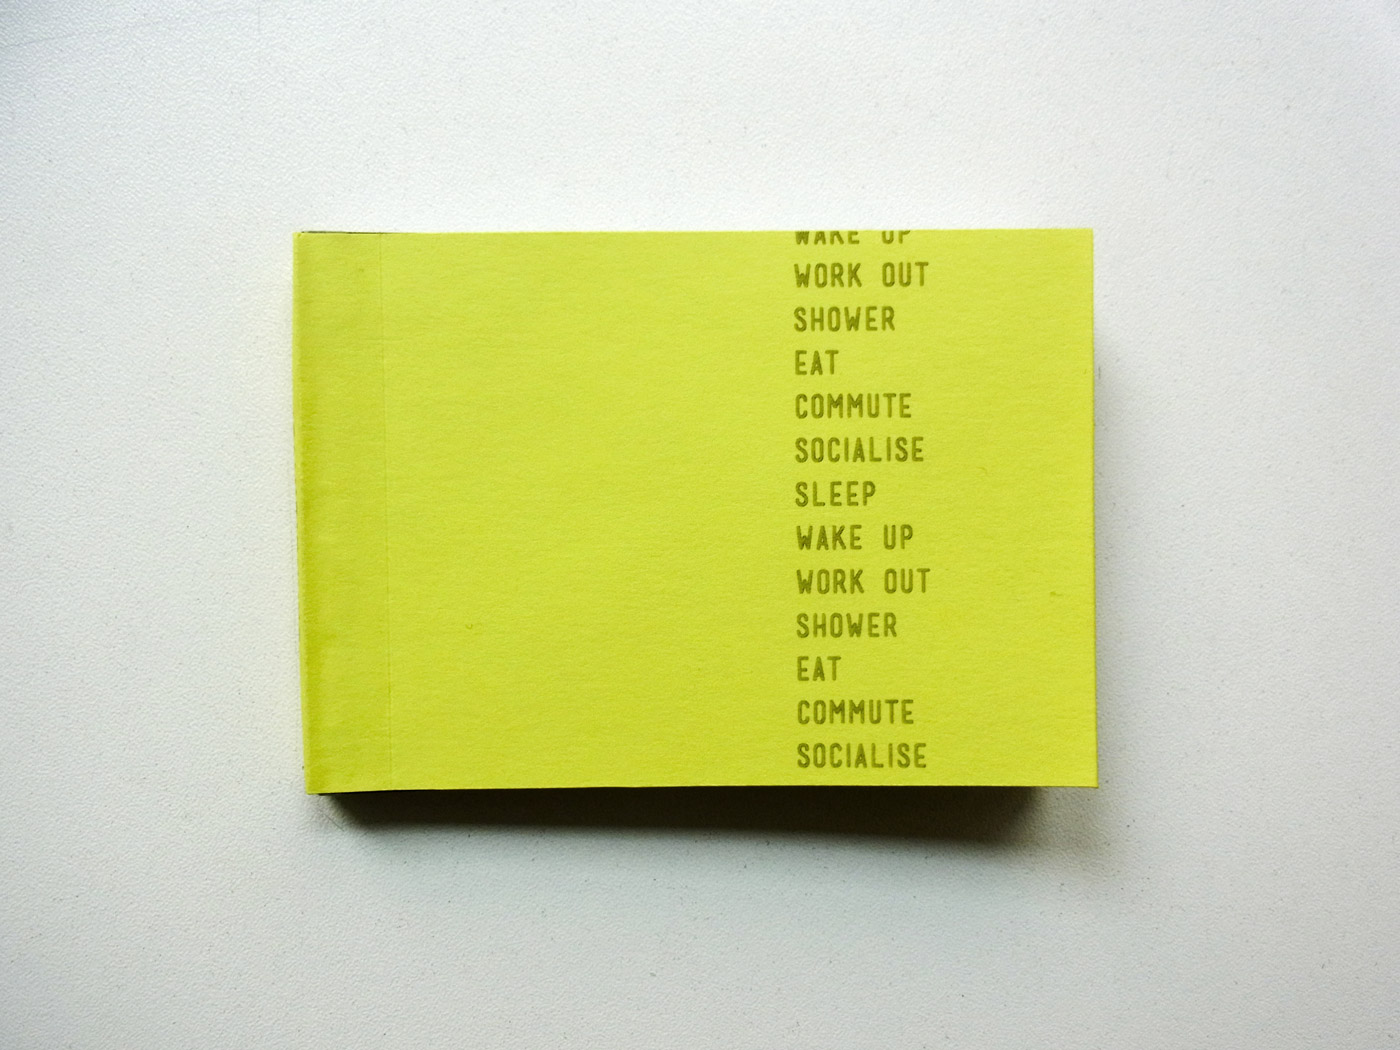 WAKE UP
WORK OUT
SHOWER
EAT
COMMUTE
SOCIALISE
SLEEP
WAKE UP
WORK OUT
SHOWER
EAT
COMMUTE
SOCIALISE